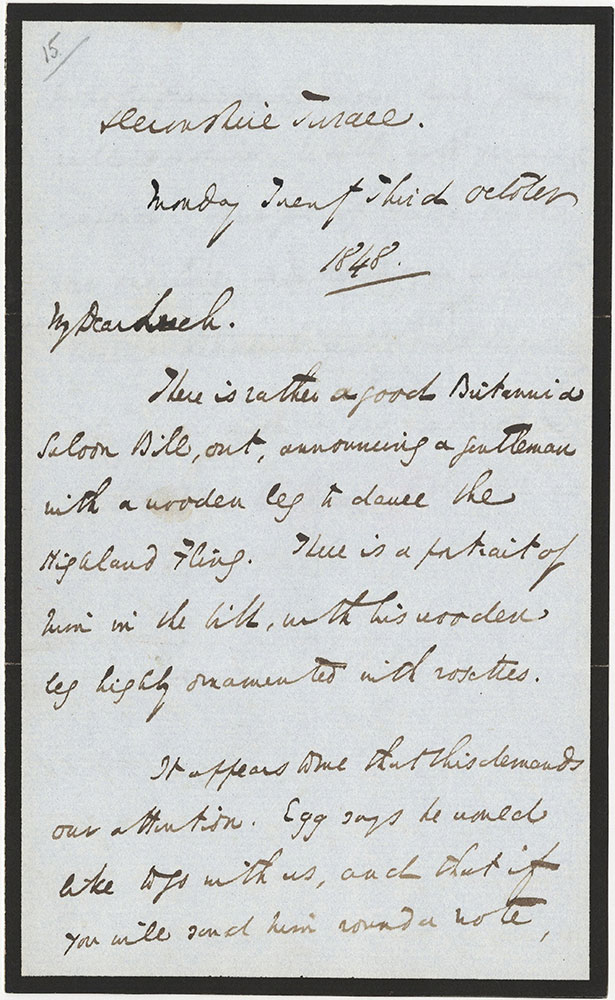 15.
Devonshire Terrace.
Monday Twenty Third October
1848.
My Dear Leech.
There is rather a good Britannia
Saloon Bill, out, announcing a gentleman
with a wooden leg to dance the
Highland Fling. There is a portrait of
him in the bill, with his wooden
leg highly ornamented with rosettes.
It appears to me that this demands
our attention. Egg says he would
like to go with us, and that if
you will send him round a note,